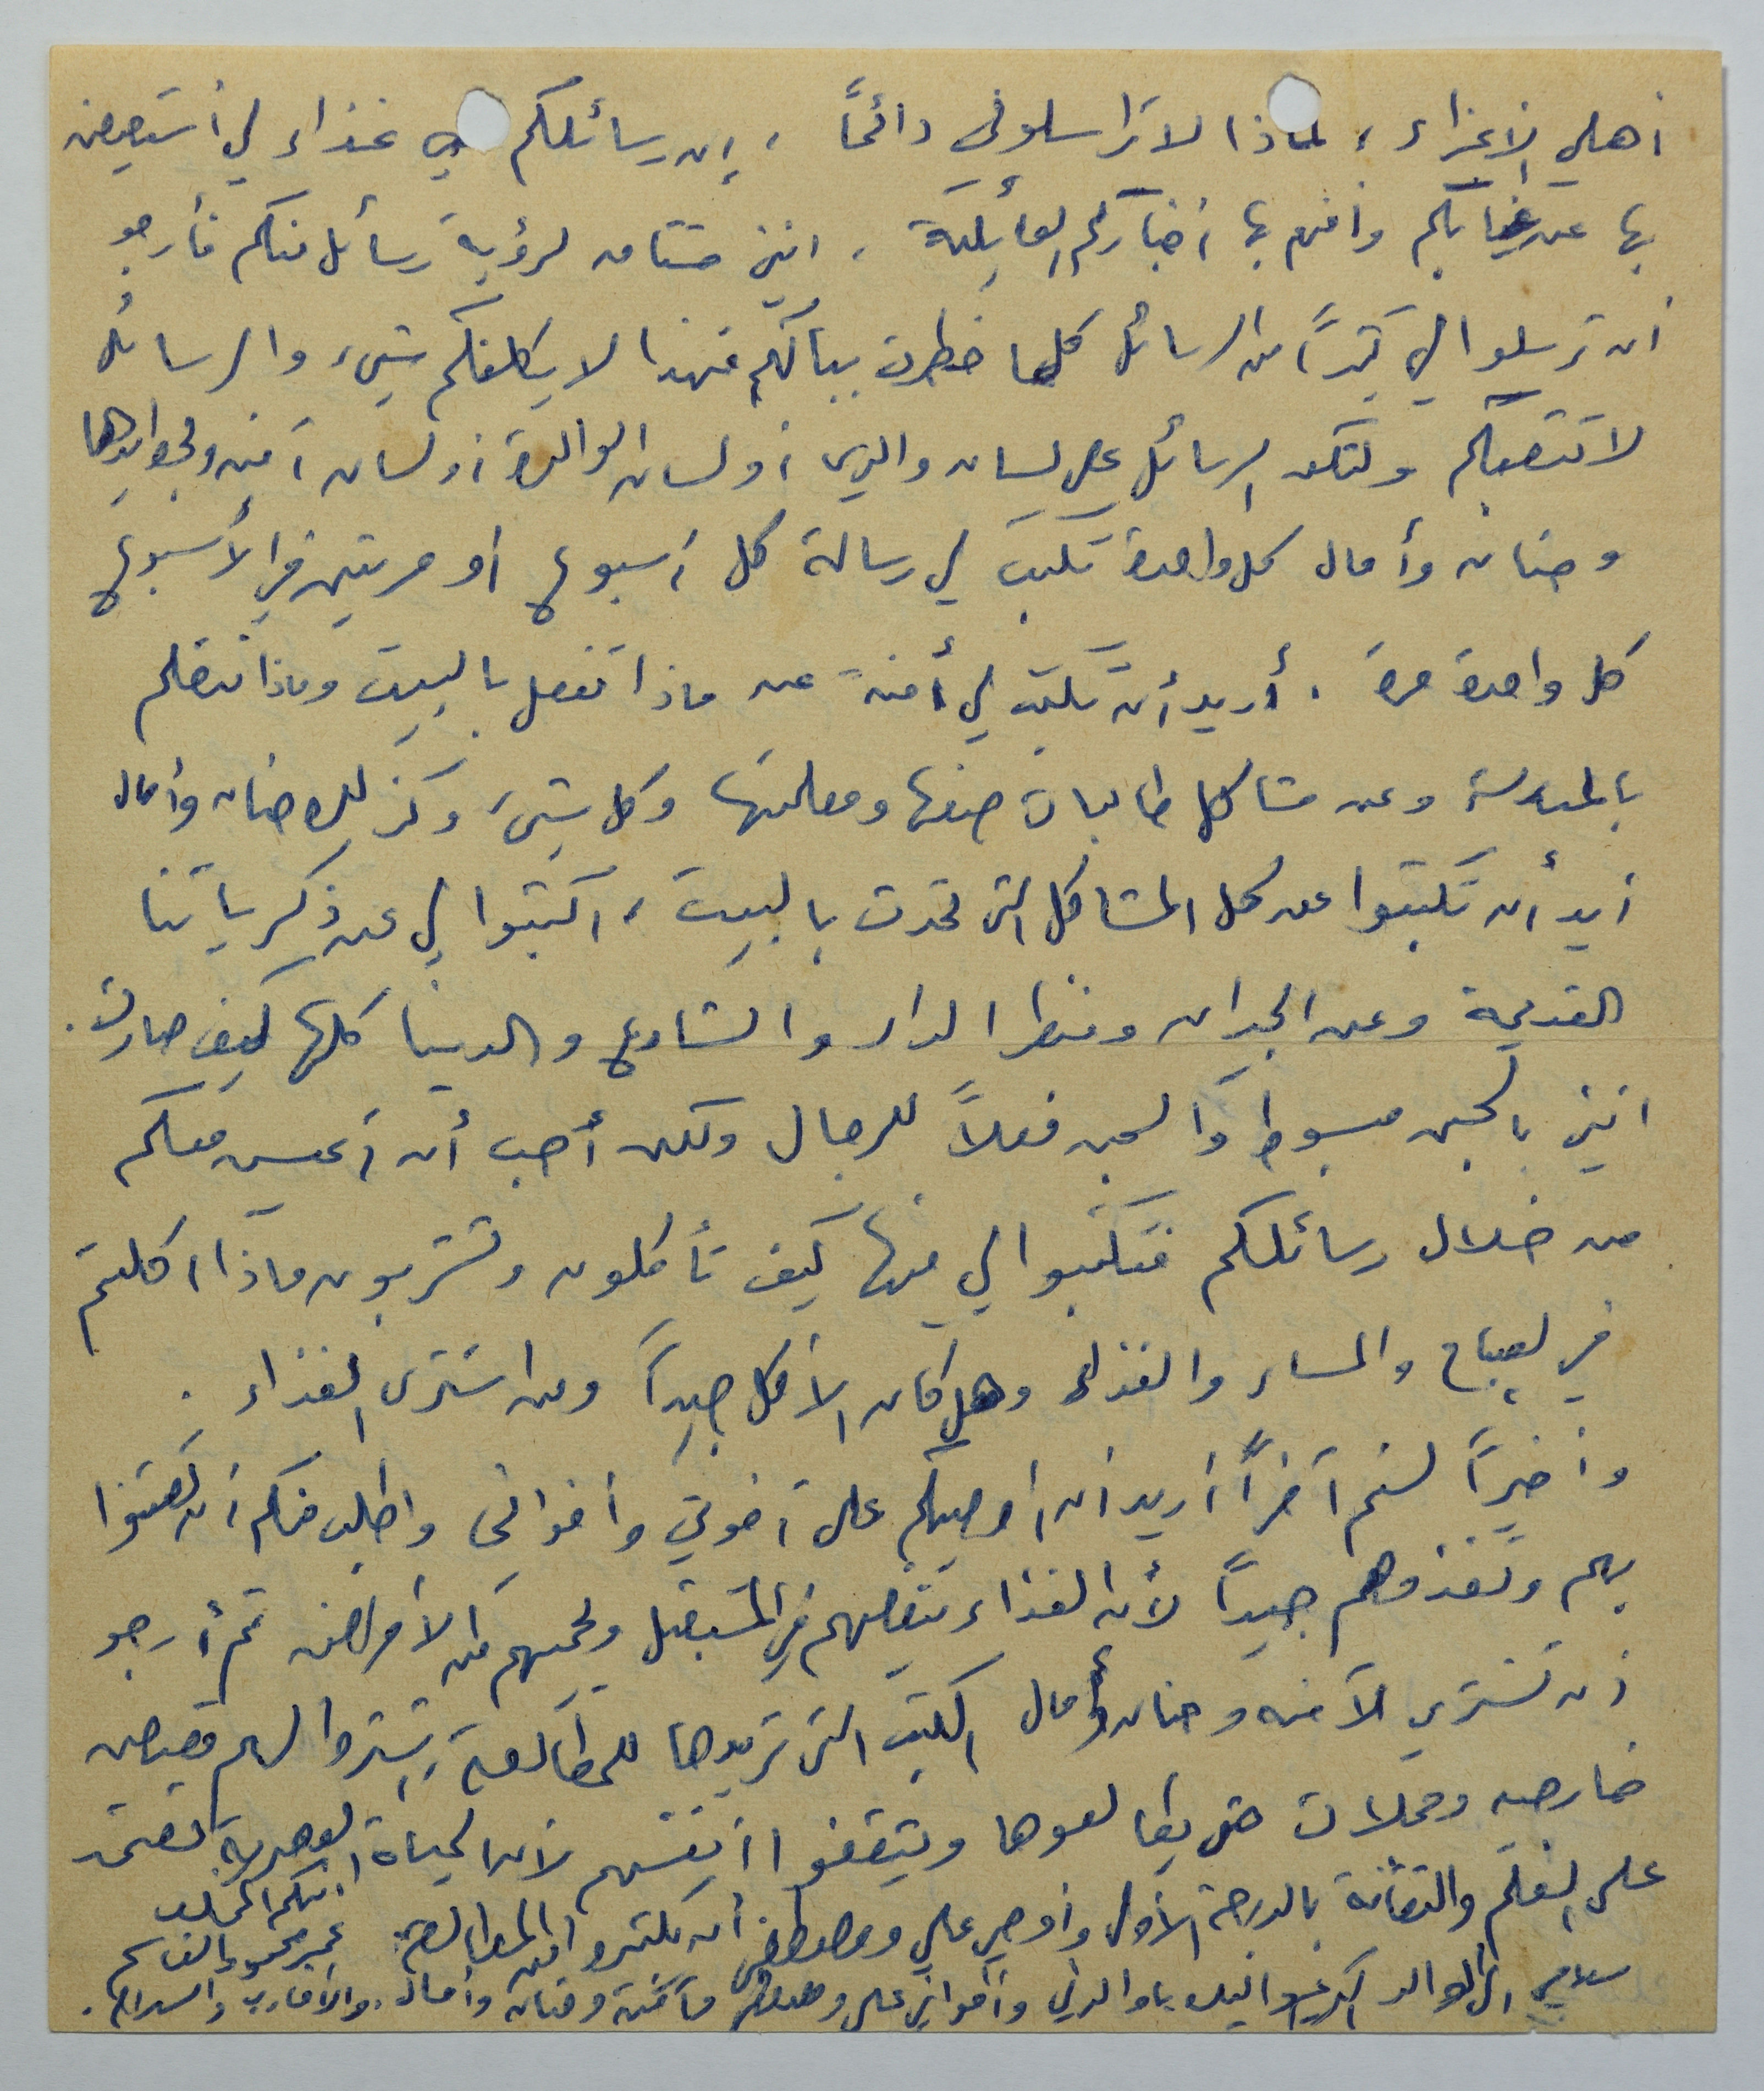 أهلي الأعزاء، لماذا لا تراسلوني دائماً، إن رسائلكم هي غذاء لي أستعيض
بها عن غيابكم وأفهم بها أخباركم العائلية. انني مشتاق لرؤية رسائل منكم فأرجو
أن ترسلوا لي كثيراً من الرسائل كلما خطرت ببالكم فهذا لا يكلفكم شيء والرسائل
لا تتعبكم ولتكن الرسائل على لسان والدي أو لسان الوالدة أو لسان آمنه ولجوابها
وحنان وأمال كل واحدة تكتب لي رسالة كل أسبوع أو مرتين في الأسبوع
كل واحدة مرة. أريد أن تكتب لي أمنة عن ماذا تفعل بالبيت وماذا تتعلم
بالمدرسة وعن مشاكل طالبات صفها ومعلمتها وكل شيء وكذلك حنان وأمال
أريد أن تكتبوا عن كل المشاكل التي تحدث بالبيت، اكتبوا لي عن ذكرياتنا
القديمة وعن الجيران ومنظر الدار والشارع والدينا كلها كيف صارت.
انني بالسجن مبسوط والسجن فعلاً للرجال ولكن أحب أن أعيش معكم
من خلال رسائلكم فتكتبوا لي فيها كيف تأكلون وتشربون ماذا اكلتم
في الصباح والمساء والغذاء وهل كان الأكل جيداً ومن اشترى الغذاء.
وأخيراً ليس آخراً أريد ان أوصيكم على أخوتي وأخواني واطلب منكم أن تعتنوا
بهم وتغذوهم جيداً لأن الغذاء ينفعهم في المستقبل ويحميهم من الأمراض ثم أرجو
أن تشتري لآمنه وحنان وأمال الكتب التي تريدها للمطالعة وتشتروا لهم قصص
خارجيه ومجلات حتى يطالعوها ويثقفوا أنفسهم لأن الحياة العصرية تعتمد
على العلم والثقافة بالدرجة الأولى وأوصي علي ومصطفى أن يكثروا من المطالعة. ابنكم المخلص
عمر محمود القاسم
سلامي الى الوالد العزيز والوالدة يا والدتي وأخواني علي ومصطفى وآمنة وحنان وأمال. والأقارب والسلام.